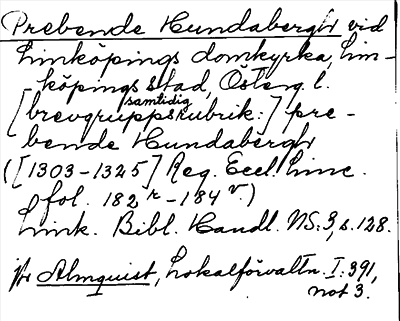 Prebende Hundabergh vid
Linköpings domkyrka, Lin-
köpings stad, Österg. l.
[samtidig
brevgruppsrubrik:] pre-
bende Hundabergh
([1303-1325] Reg. Eccl. Linc.
fol. 182 r - 184 v.)
Link. Bibl. Handl. NS: 3, s. 128.
Jfr Almquist, Lokalförvaltn. I: 391,
not 3.